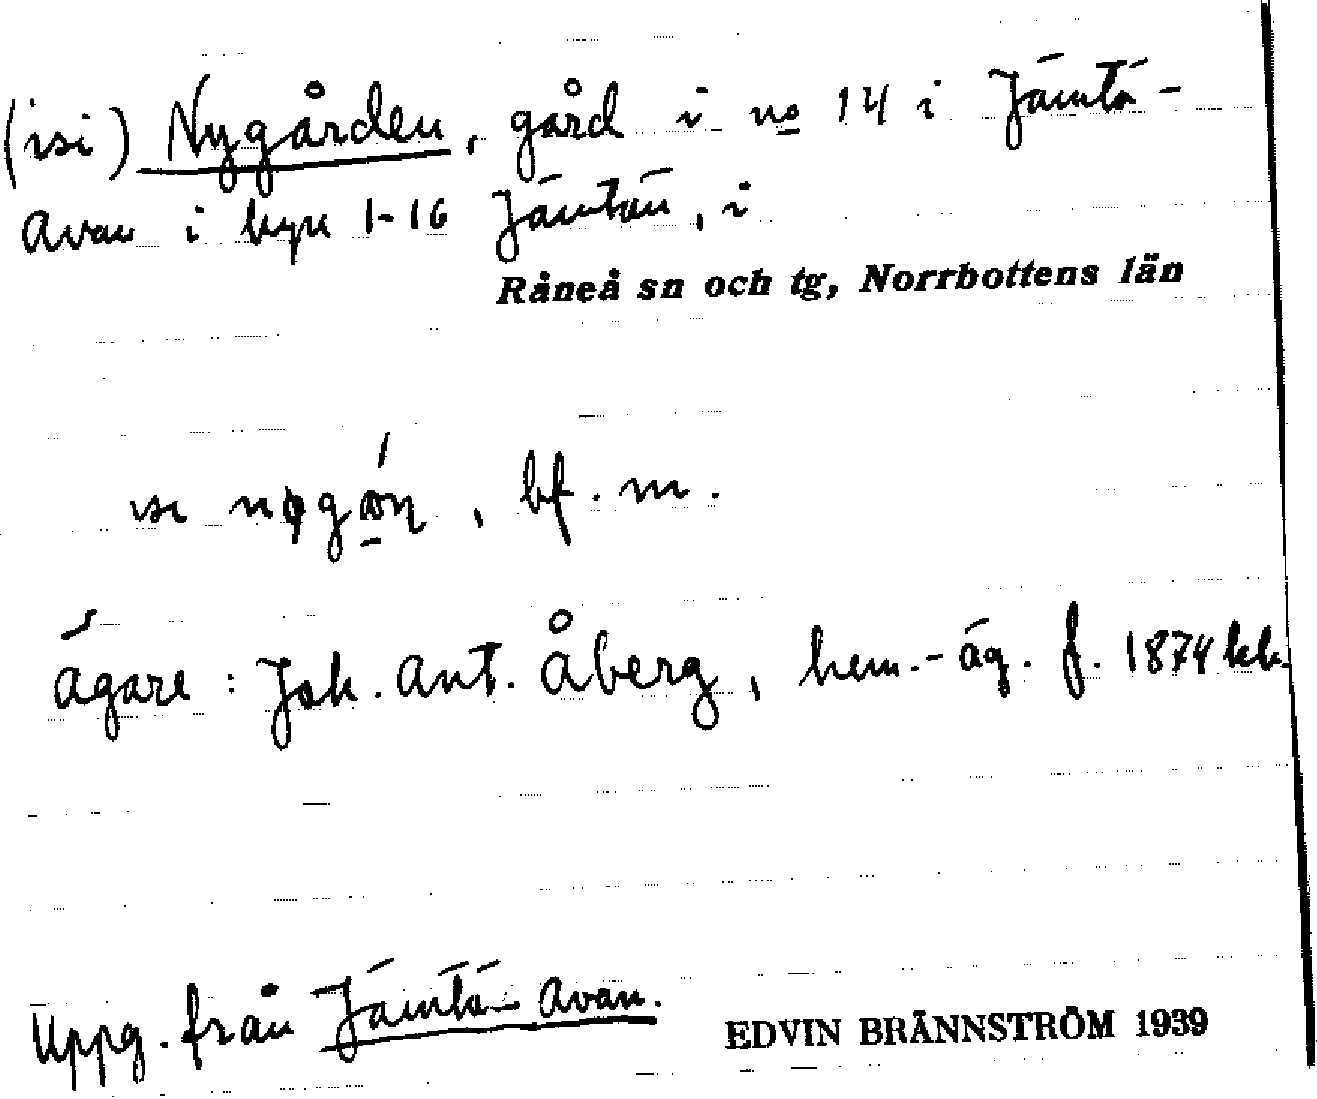 (isi) Nygården, gård i no 14 i Jämtö-
Avan i byn 1-16 Jämtön, i
Råneå sn och tg, Norrbottens län
isi nøgǫ́n, bf. m.
ägare: Joh. Ant. Åberg, hem.-äg. f. 1874 kk.
Uppg. från Jämtö-Avan.
EDVIN BRÄNNSTRÖM 1939